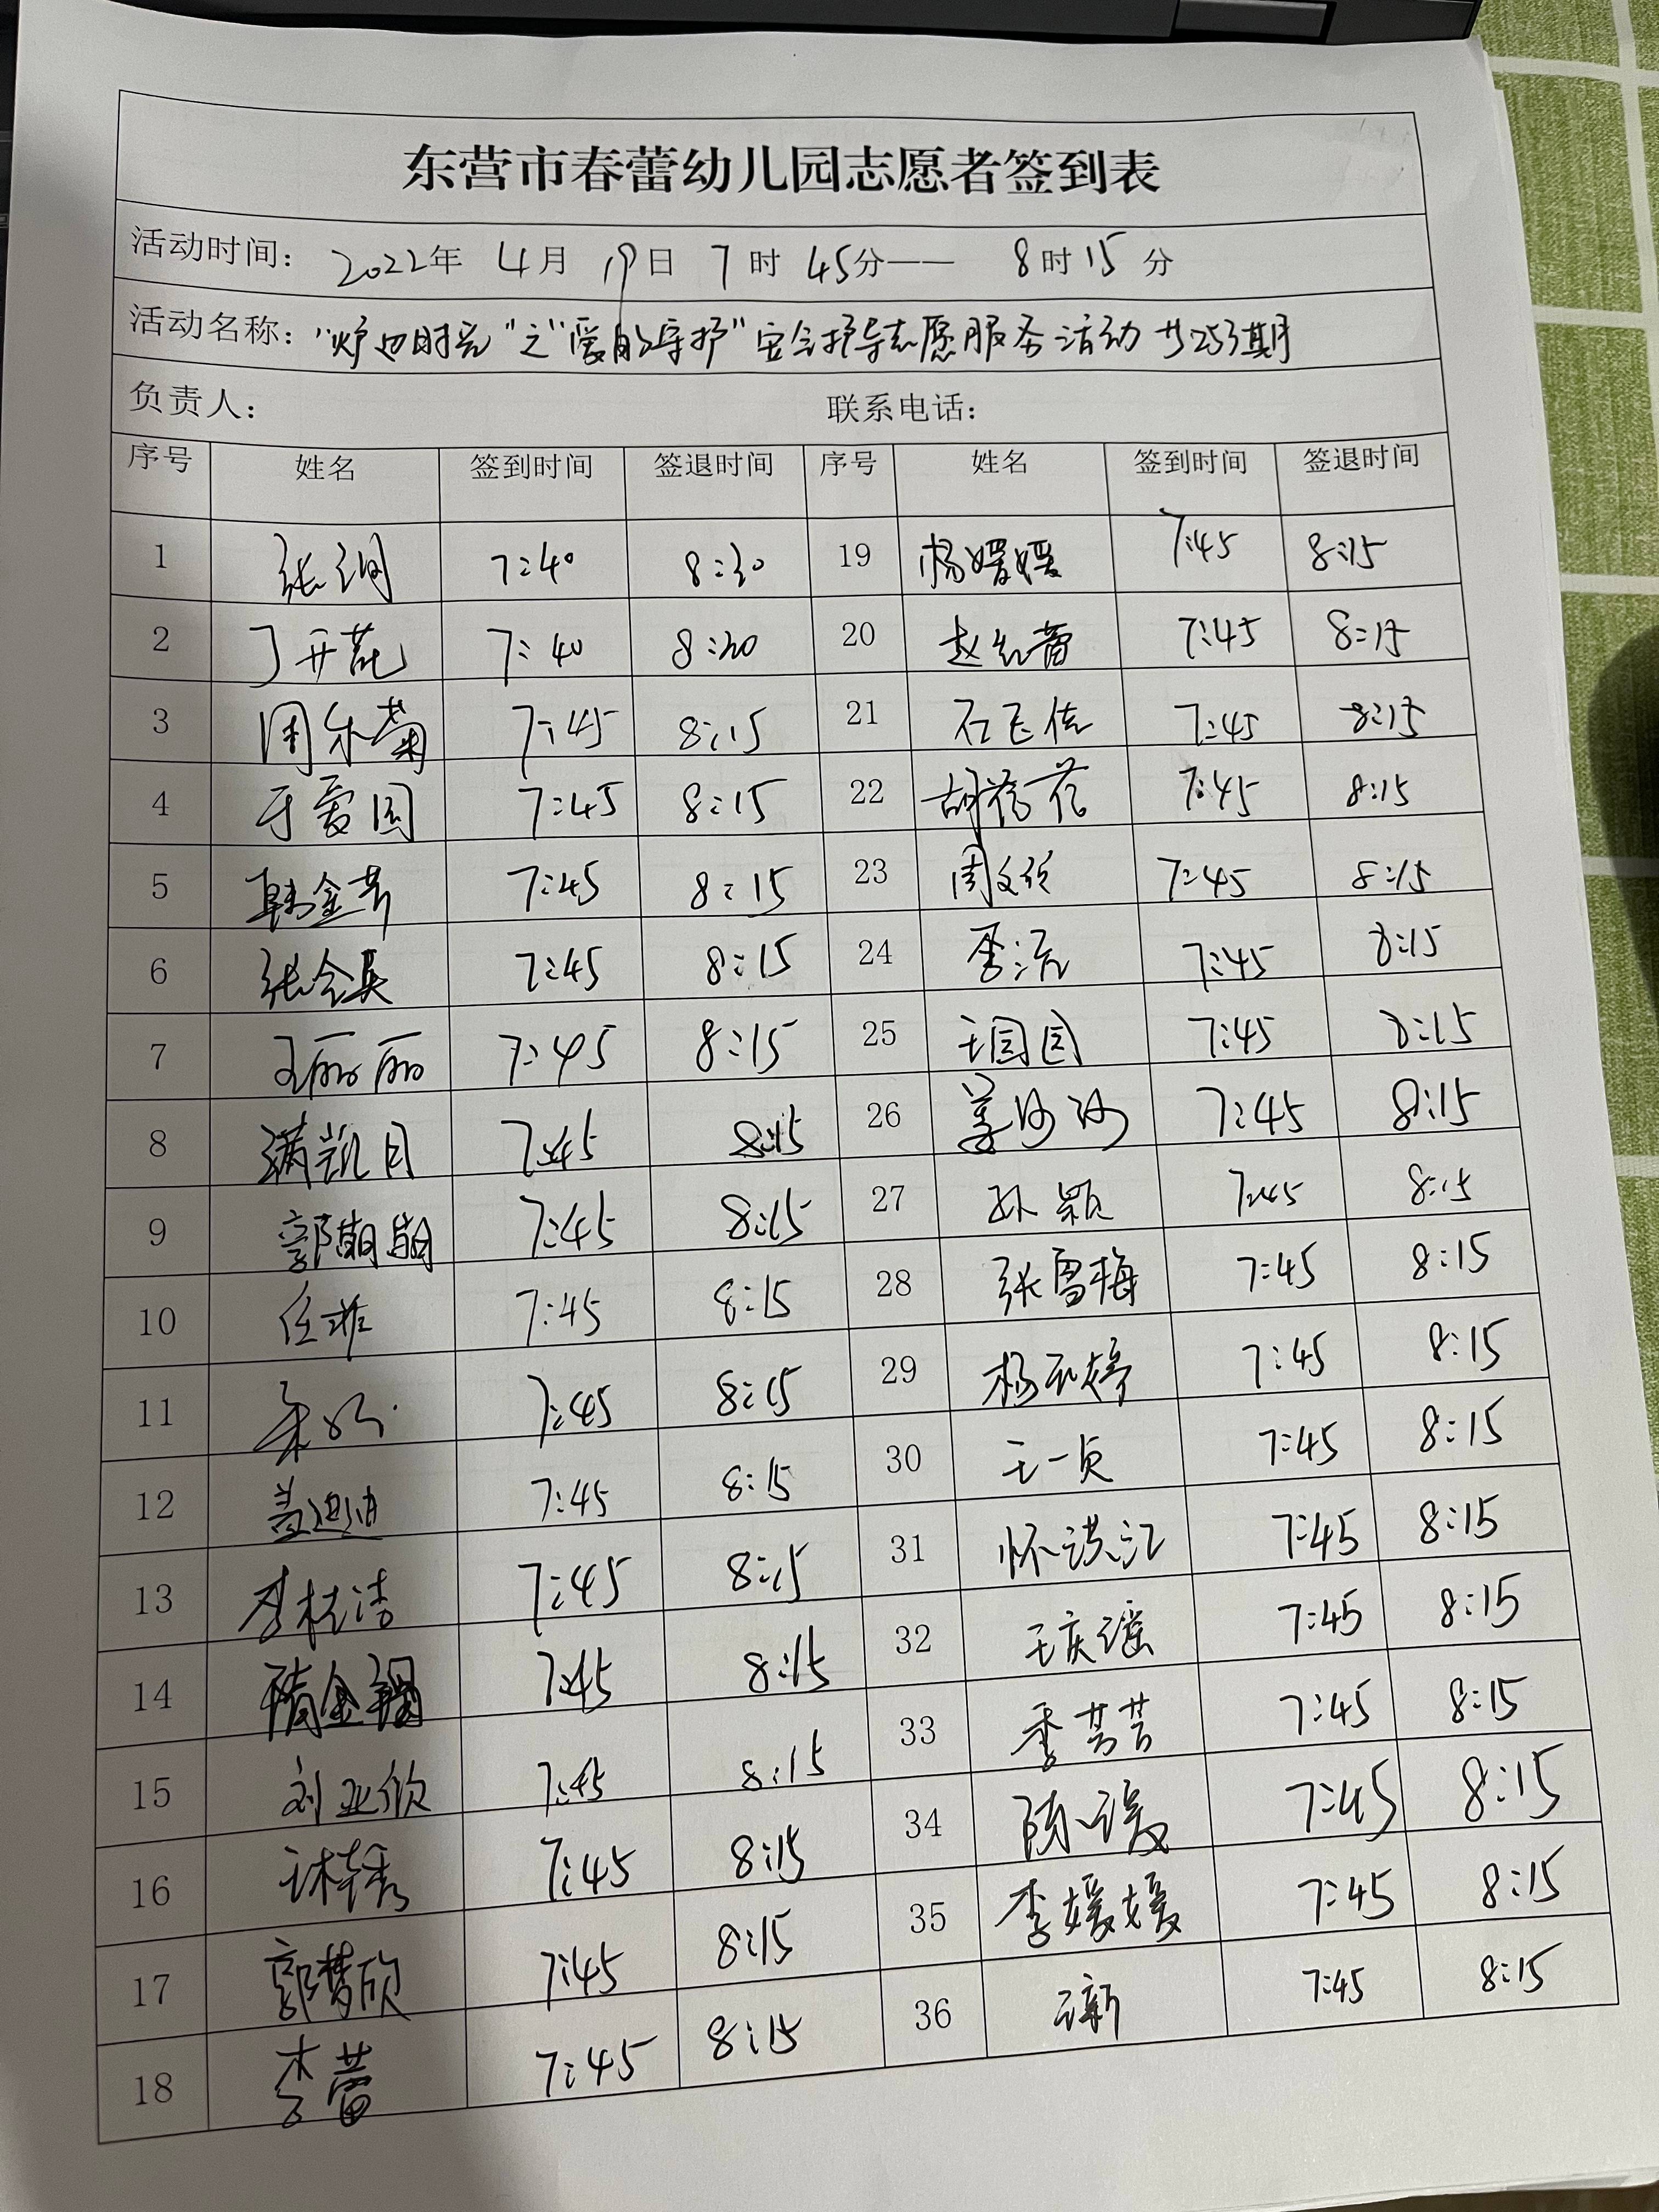 东营市春蕾幼儿园志愿者签到表
活动时间: 2022年 4月 19日 7时 45分—— 8时15分
活动名称: "炉边时光"之"爱的守护"安全护导志愿服务活动 共253期
负责人: 联系电话:
序号 姓名 签到时间 签退时间 序号 姓名 签到时间 签退时间
1 张润 7:40 8:30 19 杨媛媛 7:45 8:15
2 丁开花 7:40 8:20 20 赵 蕾 7:45 8:15
3 周乐菊 7:45 8:15 21 石飞倩 7:45 8:15
4 于爱国 7:45 8:15 22 胡蓓蓓 7:45 8:15
5 韩金芳 7:45 8:15 23 周文欣 7:45 8:15
6 张会英 7:45 8:15 24 李洁 7:45 8:15
7 王丽丽 7:45 8:15 25 王园园 7:45 8:15
8 满凯月 7:45 8:15 26 姜沙沙 7:45 8:15
9 郭萌萌 7:45 8:15 27 孙颖 7:45 8:15
10 任 7:45 8:15 28 张雪梅 7:45 8:15
11 7:45 8:15 29 杨 婷 7:45 8:15
12 盖迪迪 7:45 8:15 30 王一贞 7:45 8:15
13 李桂洁 7:45 8:15 31 怀洪江 7:45 8:15
14 隋金 7:45 8:15 32 王庆瑶 7:45 8:15
15 刘亚欣 7:45 8:15 33 季芸芸 7:45 8:15
16 7:45 8:15 34 陈媛 7:45 8:15
17 郭梦欣 7:45 8:15 35 李媛媛 7:45 8:15
18 李蕾 7:45 8:15 36 王新 7:45 8:15